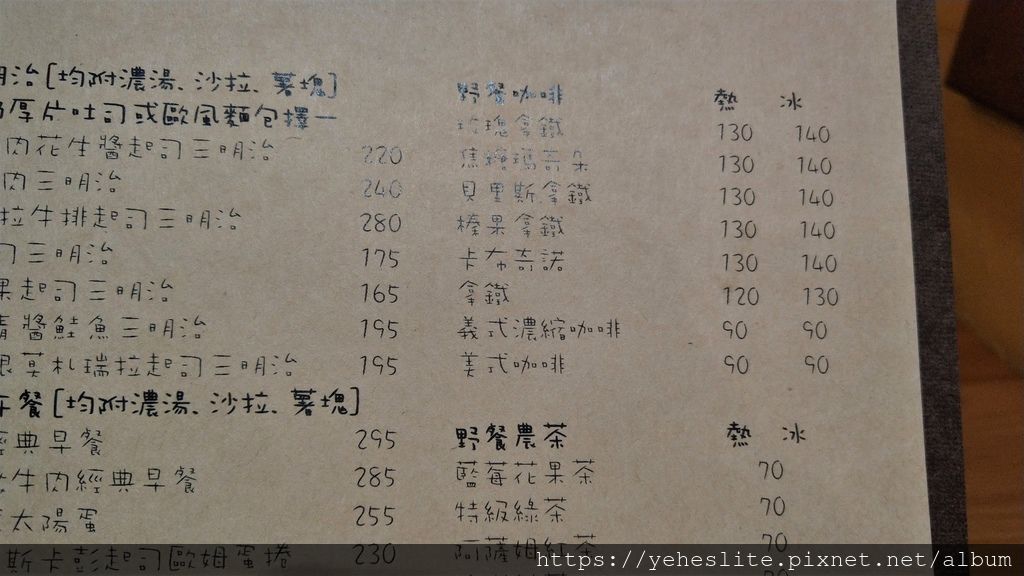 明治[均附濃湯、沙拉、薯塊]
厚片吐司或歐風麵包擇一
肉花生醬起司三明治 220
肉三明治 240
拉牛排起司三明治 280
三明治 175
果起司三明治 165
青醬鮭魚三明治 195
根莫札瑞拉起司三明治 195
午餐[均附濃湯、沙拉、薯塊]
經典早餐 295
牛肉經典早餐 285
太陽蛋 255
斯卡彭起司歐姆蛋捲 230
野餐咖啡 熱 冰
玫瑰拿鐵 130 140
焦糖瑪奇朵 130 140
貝里斯拿鐵 130 140
榛果拿鐵 130 140
卡布奇諾 130 140
拿鐵 120 130
義式濃縮咖啡 90 90
美式咖啡 90 90
野餐農茶 熱 冰
藍莓花果茶 70
特級綠茶 70
阿薩姆紅茶 70
https://yeheslite.pixnet.net/album